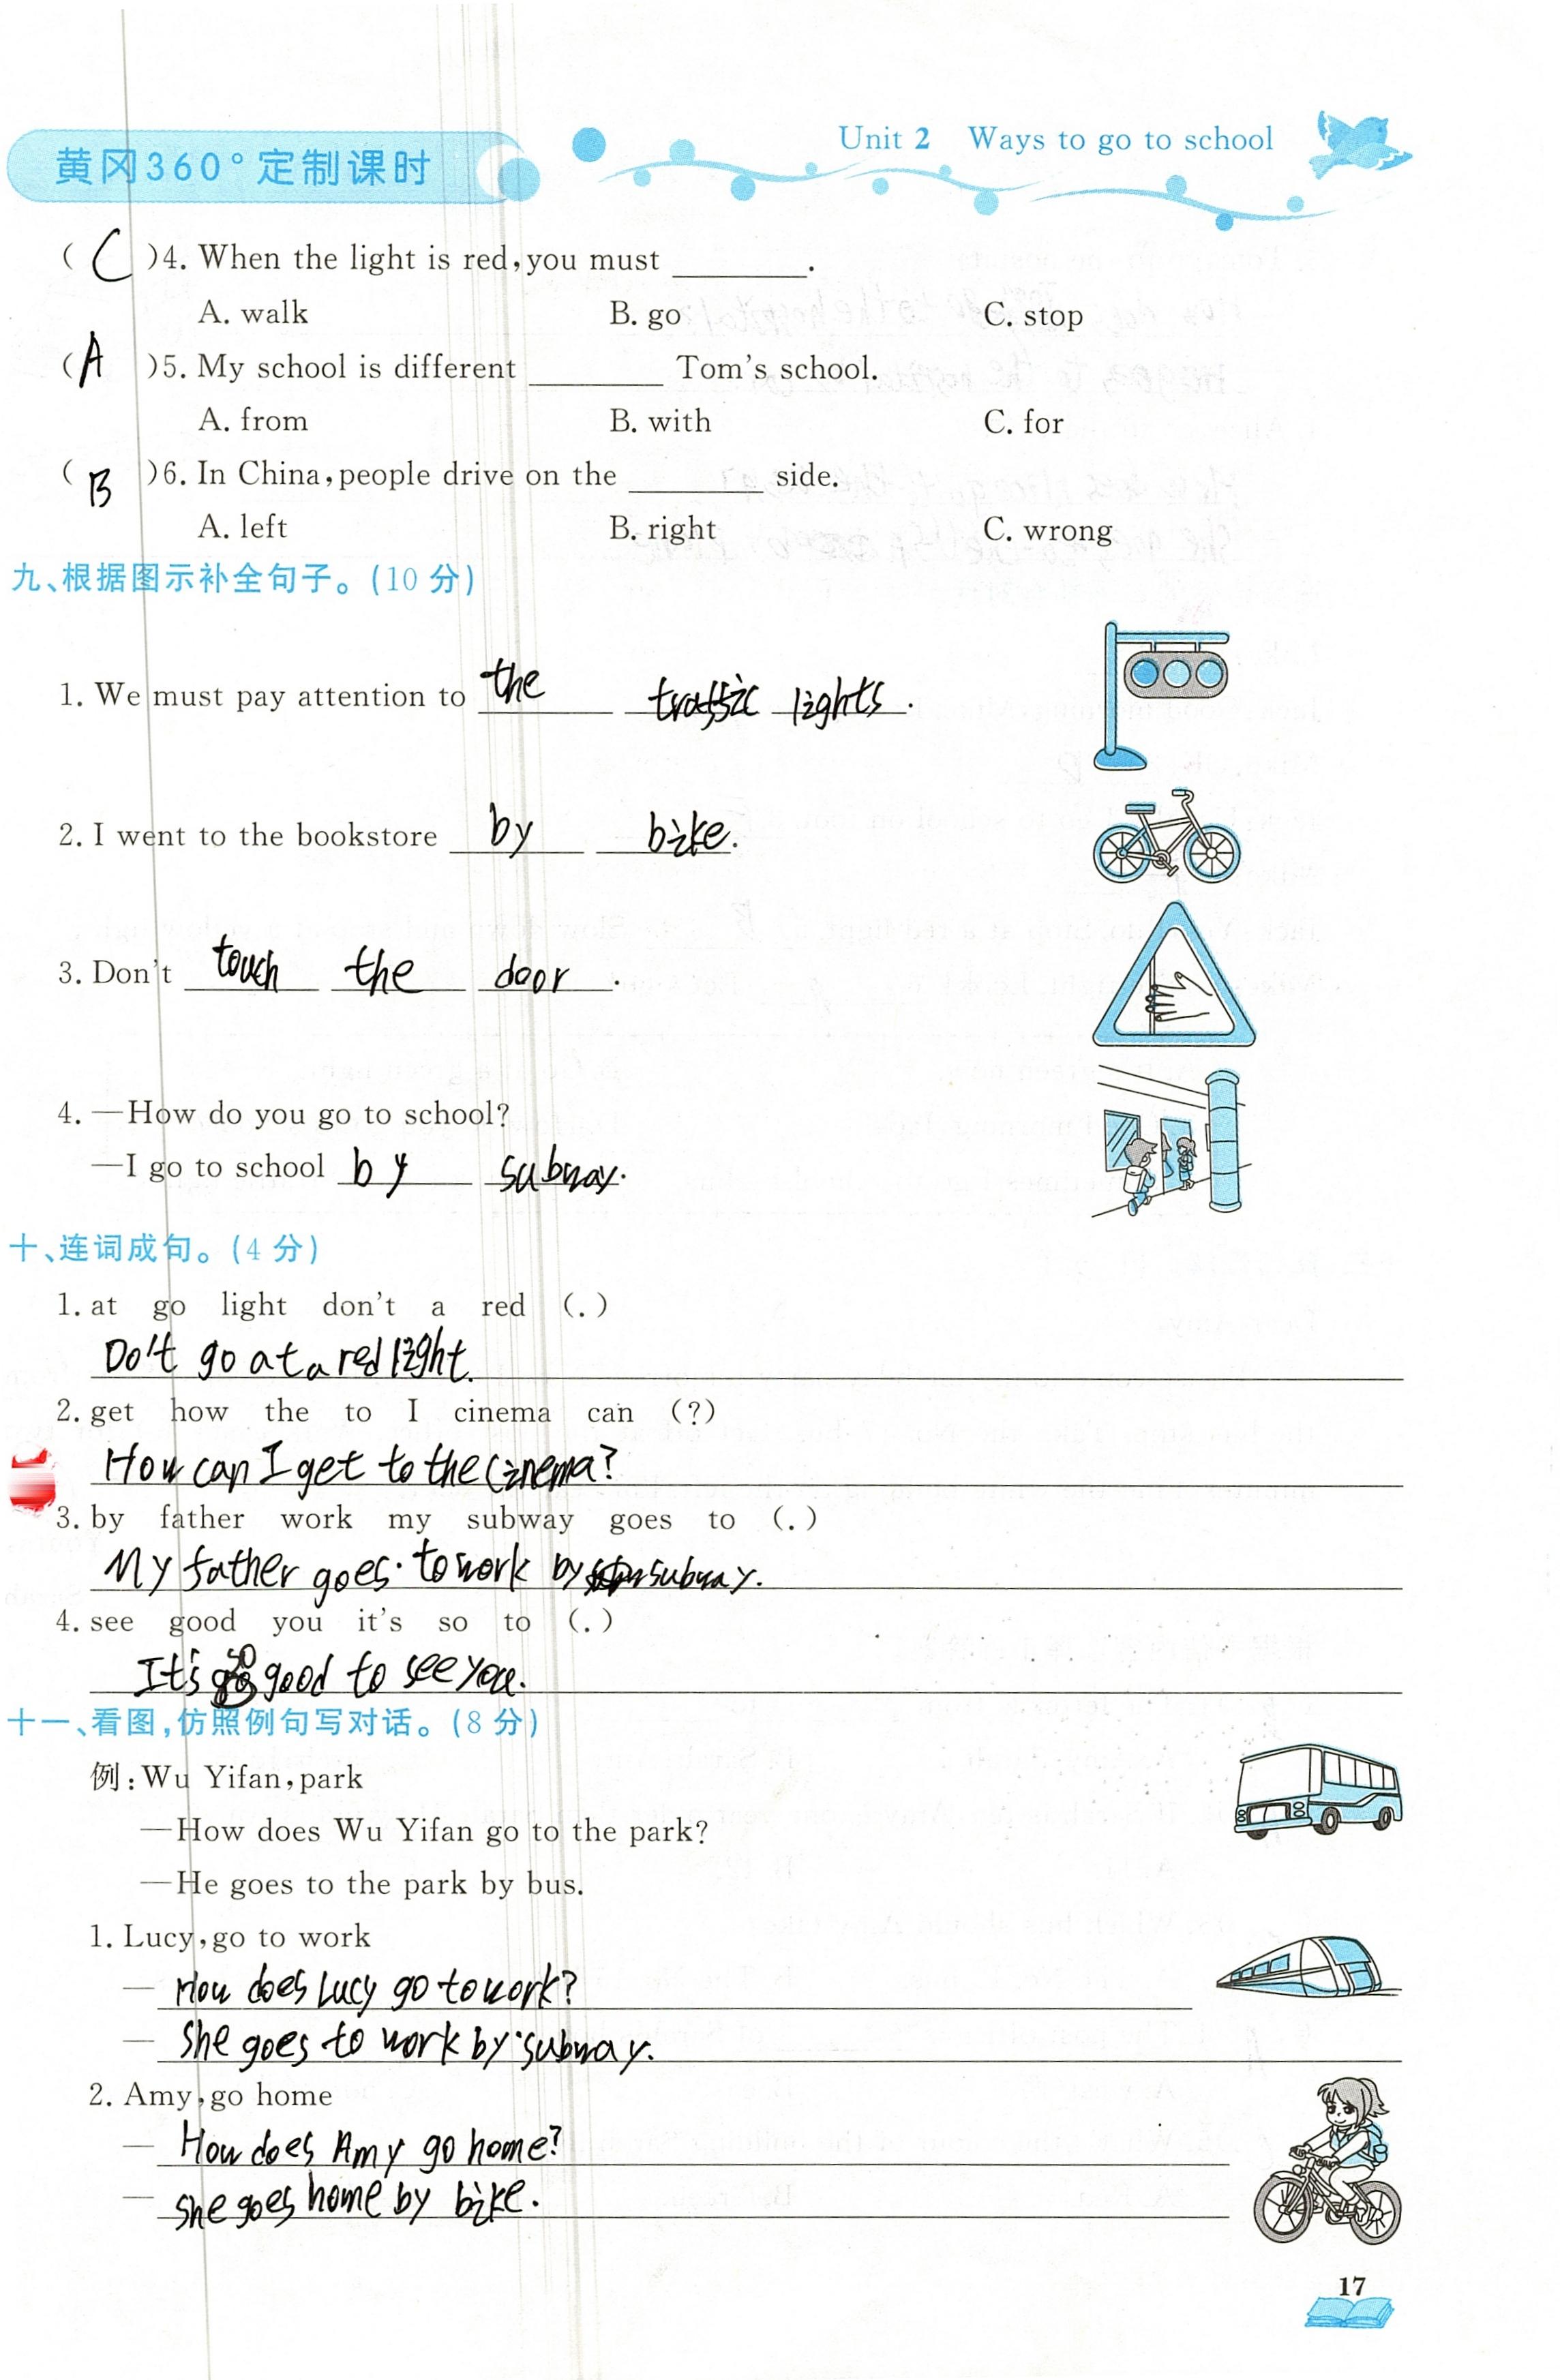 黄冈360°定制课时
Unit 2 Ways to go to school
( C )4. When the light is red, you must ________.
A. walk B. go C. stop
( A )5. My school is different ________ Tom's school.
A. from B. with C. for
( B )6. In China, people drive on the ________ side.
A. left B. right C. wrong
九、根据图示补全句子。(10 分)
1. We must pay attention to the traffic lights.
2. I went to the bookstore by bike.
3. Don't touch the door.
4. —How do you go to school?
—I go to school by subway.
十、连词成句。(4 分)
1. at go light don't a red (.)
Do't go at a red light.
2. get how the to I cinema can (?)
How can I get to the cinema?
3. by father work my subway goes to (.)
My father goes to work by subway.
4. see good you it's so to (.)
It's so good to see you.
十一、看图,仿照例句写对话。(8 分)
例:Wu Yifan, park
—How does Wu Yifan go to the park?
—He goes to the park by bus.
1. Lucy, go to work
— How does Lucy go to work?
— She goes to work by subway.
2. Amy, go home
— How does Amy go home?
— She goes home by bike.
17